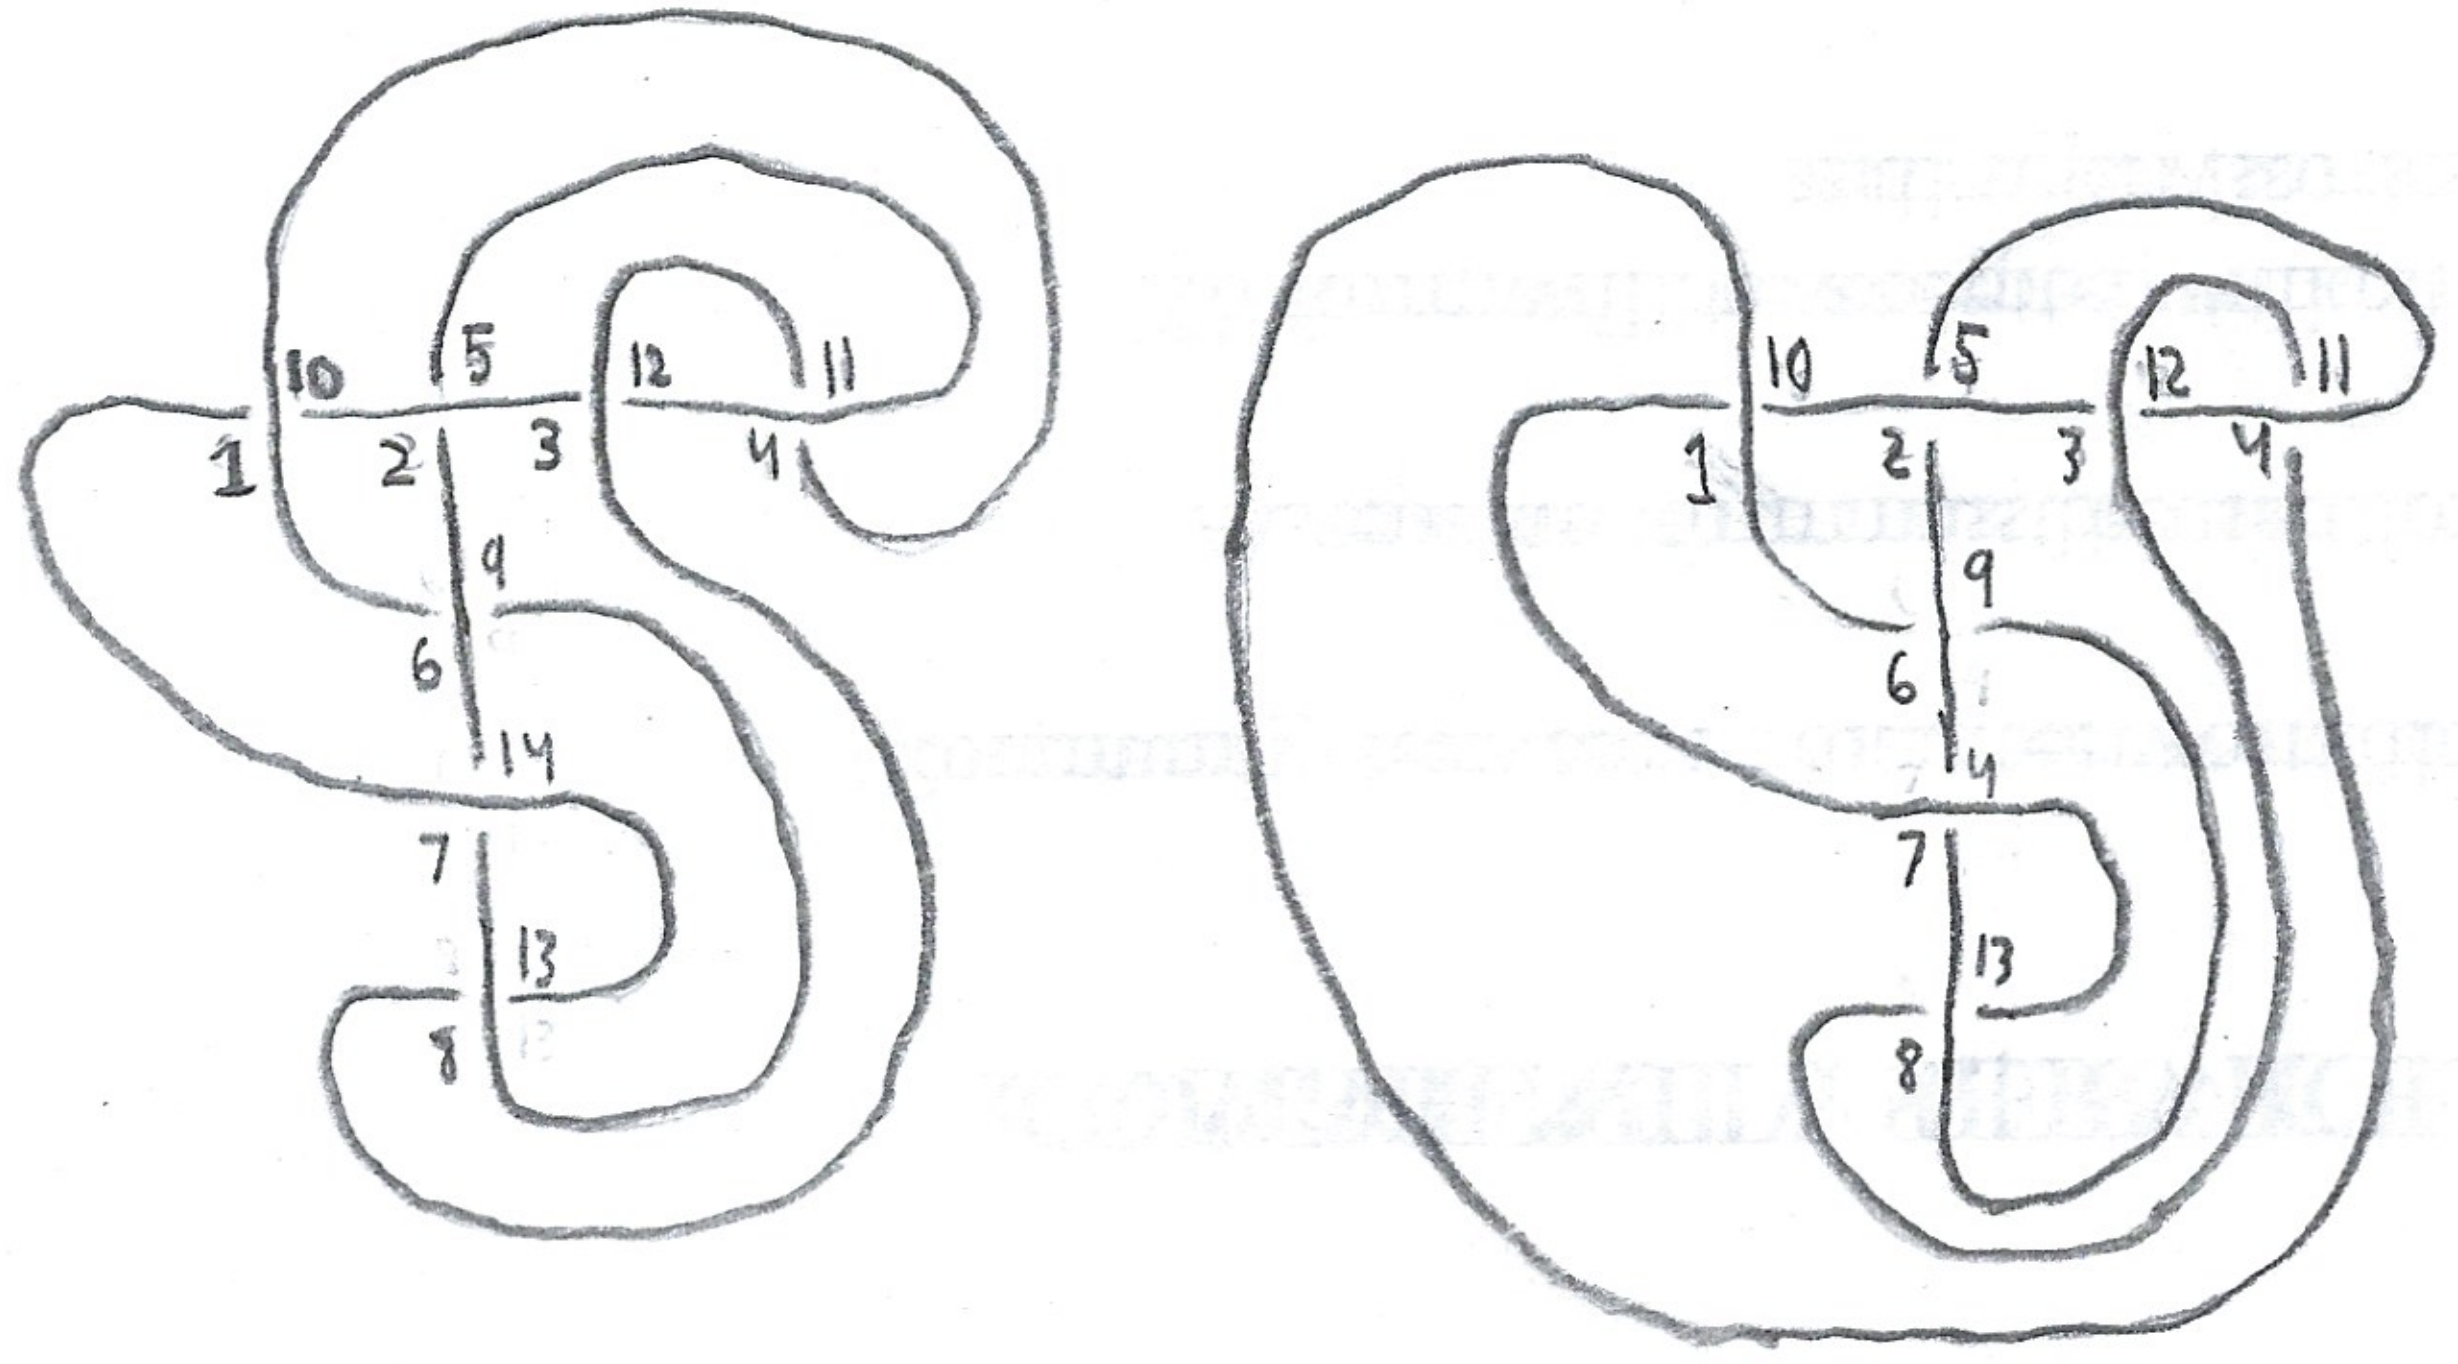 10 5 12 11
1 2 3 4
9
6
14
7
13
8
10 5 12 11
1 2 3 4
9
6
4
7
13
8